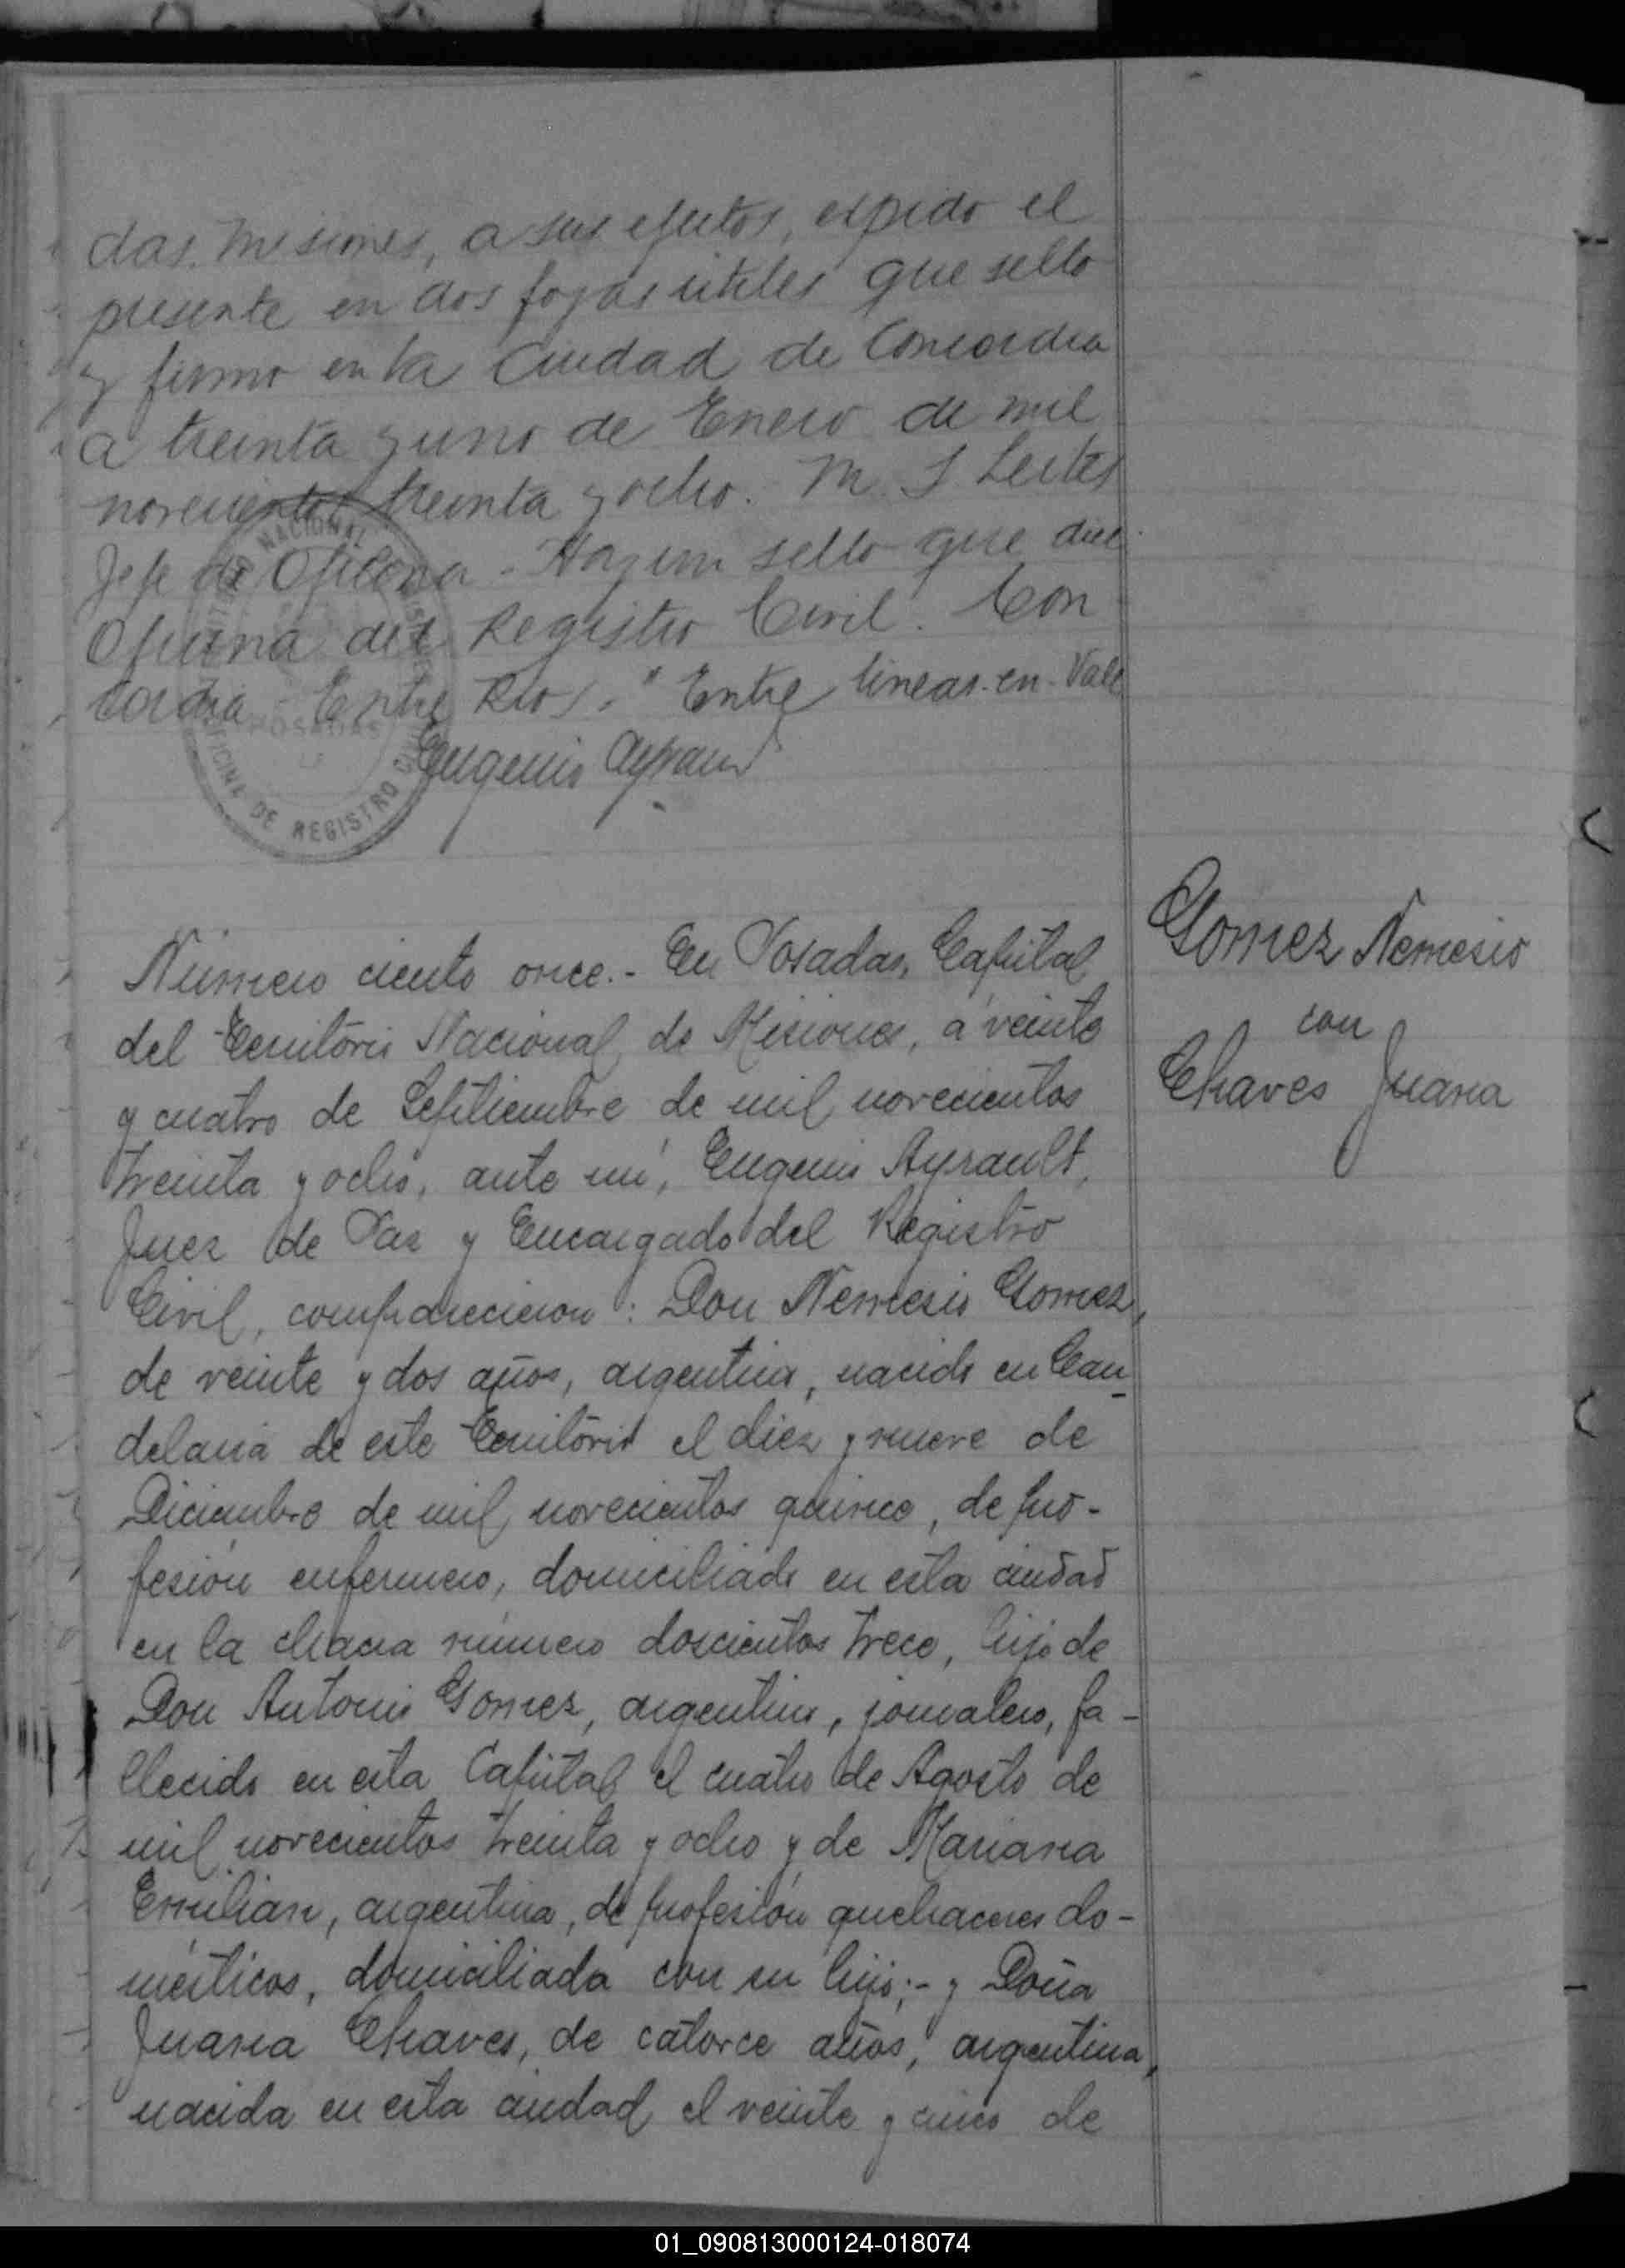 das. Misiones, a sus efectos, expido el
presente en dos fojas utiles que sello
y firmo en la Ciudad de Concordia
a treinta y uno de Enero de mil
novecientos treinta y ocho. M. S Leites
Jefe de Oficina - Hay un sello que dice
Oficina del Registro Civil. Con
cordia - Entre Rios." Entre lineas-en-Vale
NACIONAL
POSADAS
OFICINA DE REGISTRO CIVIL
Eugenio Ayrault
Gomez Nemesio
con
Chaves Juana
Número ciento once.- En Posadas, Capital
del Territorio Nacional de Misiones, á veinte
y cuatro de Septiembre de mil novecientos
treinta y ocho, ante mí, Eugenio Ayrault,
Juez de Paz y Encargado del Registro
Civil, comparecieron: Don Nemesio Gomez,
de veinte y dos años, argentino, nacido en Can-
delaria de este Territorio el diez y nueve de
Diciembre de mil novecientos quince, de pro-
fesión enfermero, domiciliado en esta ciudad
en la chacra número doscientos trece, hijo de
Don Antonio Gomez, argentino, jornalero, fa-
llecido en esta Capital el cuatro de Agosto de
mil novecientos treinta y ocho y de Mariana
Emilian, argentina, de profesión quehaceres do-
mésticos, domiciliada con su hijo;- y Doña
Juana Chaves, de catorce años, argentina,
nacida en esta ciudad el veinte y cinco de
01_090813000124-018074